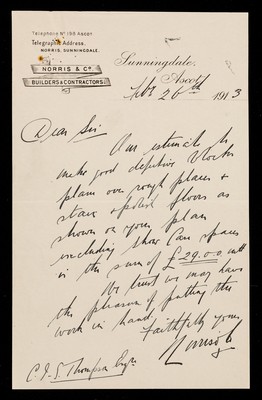 Telephone No 188 Ascot
Telegraphic Address.
NORRIS, SUNNINGDALE.
NORRIS & Co.
BUILDERS & CONTRACTORS.
Sunningdale,
Ascot,
Feb 26th 1913
Dear Sir
Our estimate to
make good defective blocks
plane over rough places &
stain & polish floors as
shown on your plan
including those Cas spaces
in the sum of £29.0.0 nett
We trust we may have
the pleasure of putting this
work in hand,
Faithfully yours
Norris & Co
C. J. S. Thompson Esqre